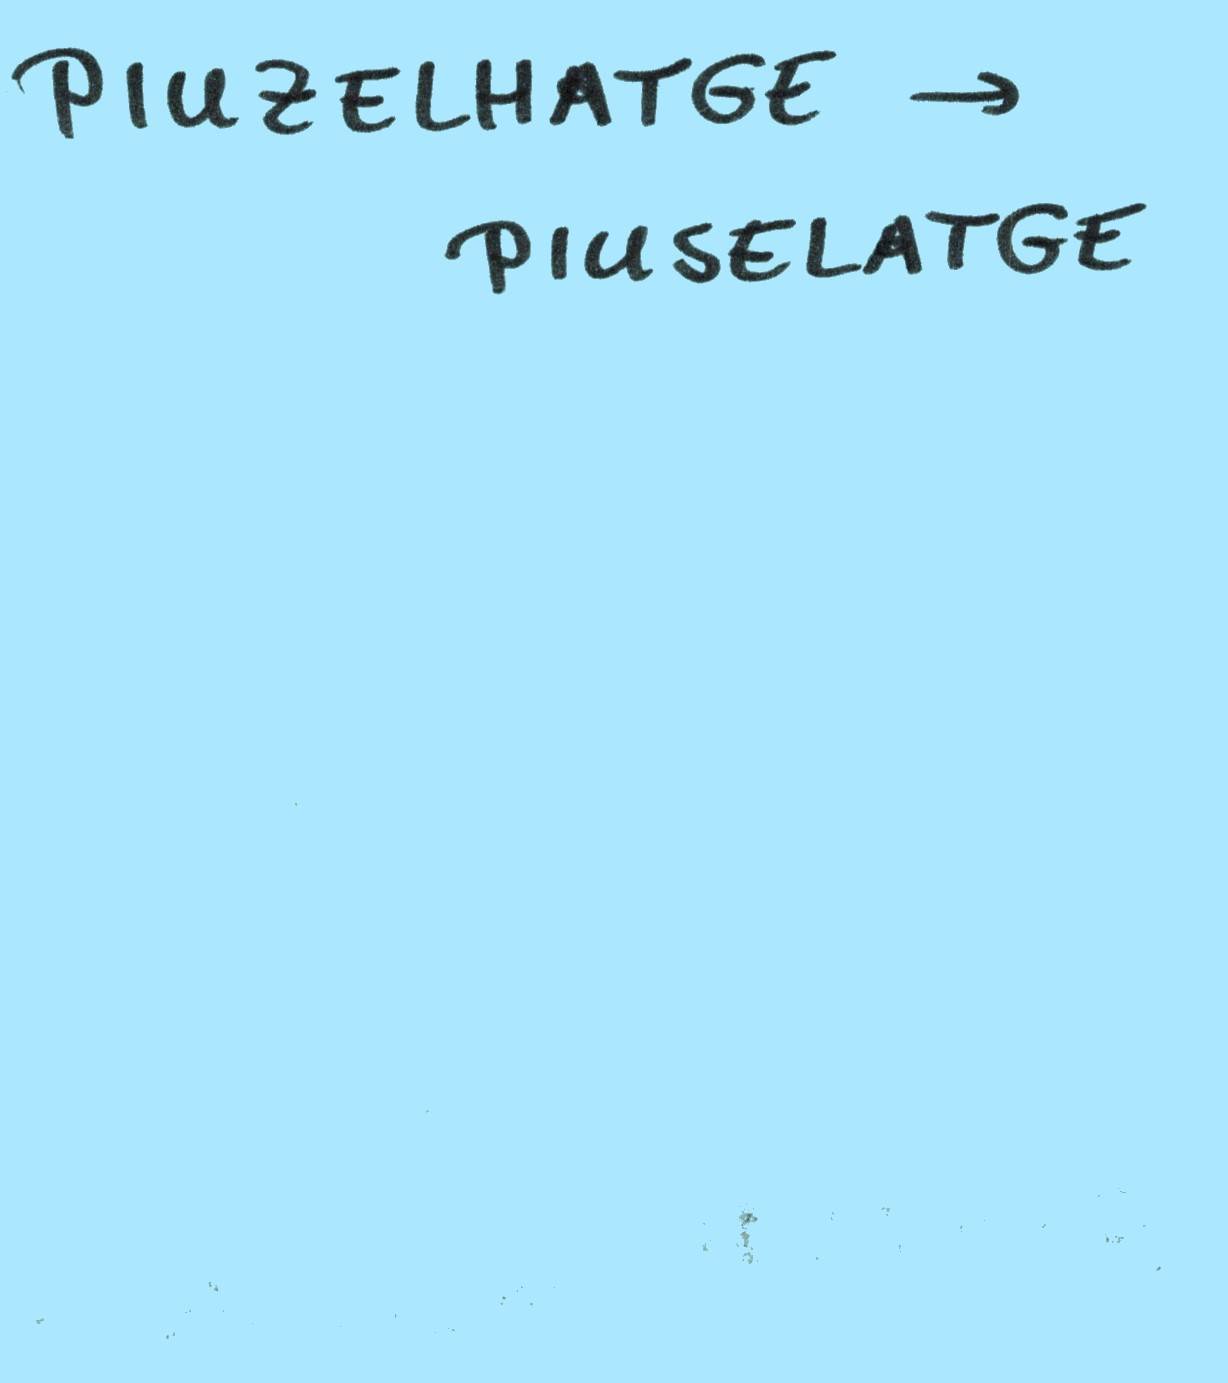 PIUZELHATGE →
PIUSELATGE